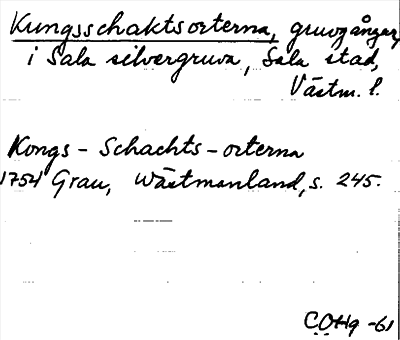 Kungsschaktsorterna, gruvgångar,
i Sala silvergruva, Sala stad,
Västm. l.
Kongs - Schachts - orterna
1754 Grau, Wästmanland, s. 245.
COHg -61